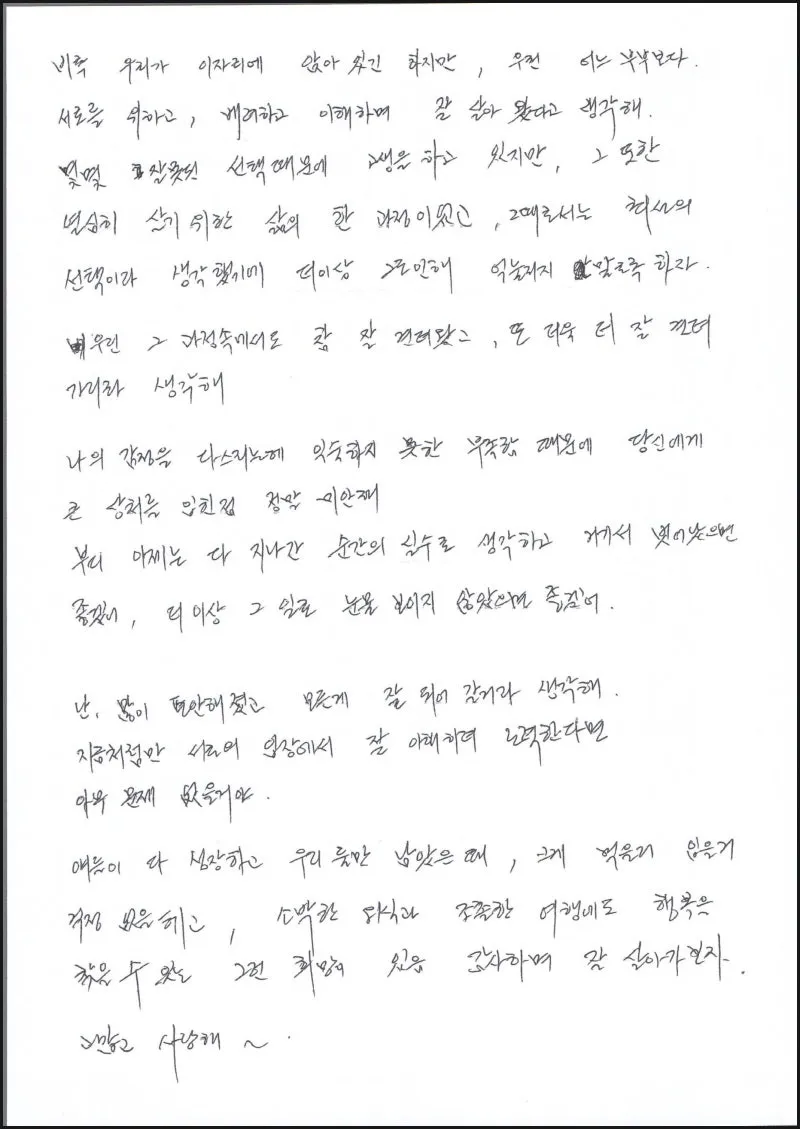 비록 우리가 이자리에 앉아 있긴 하지만, 우린 어느 부부보다.
서로를 위하고, 배려하고 이해하며 잘 살아 왔다고 생각해.
몇몇 잘못된 선택때문에 고생을 하고 있지만, 그 또한
열심히 살기 위한 삶의 한 과정이었고, 그때로서는 최선의
선택이라 생각했기에 더이상 그로인해 억눌리지 말도록 하자.
우린 그 과정속에서도 참 잘 견뎌왔고, 또 더욱 더 잘 견뎌
가리라 생각해
나의 감정을 다스리는데 익숙하지 못한 부족함 때문에 당신에게
큰 상처를 입힌점 정말 미안해
부디 이제는 다 지나간 순간의 실수로 생각하고 거기서 벗어났으면
좋겠어, 더이상 그 일로 눈물 보이지 않았으면 좋겠어.
난, 많이 편안해졌고 모든게 잘 되어 갈거라 생각해.
지금처럼만 서로의 입장에서 잘 이해하며 노력한다면
아무 문제 없을거야.
애들이 다 성장하고 우리 둘만 남았을 때, 크게 먹을거 입을거
걱정 없을테고, 소박한 외식과 조촐한 여행에도 행복을
찾을 수 있는 그런 희망이 있음 감사하며 잘 살아가 보자.
고맙고 사랑해 ~.